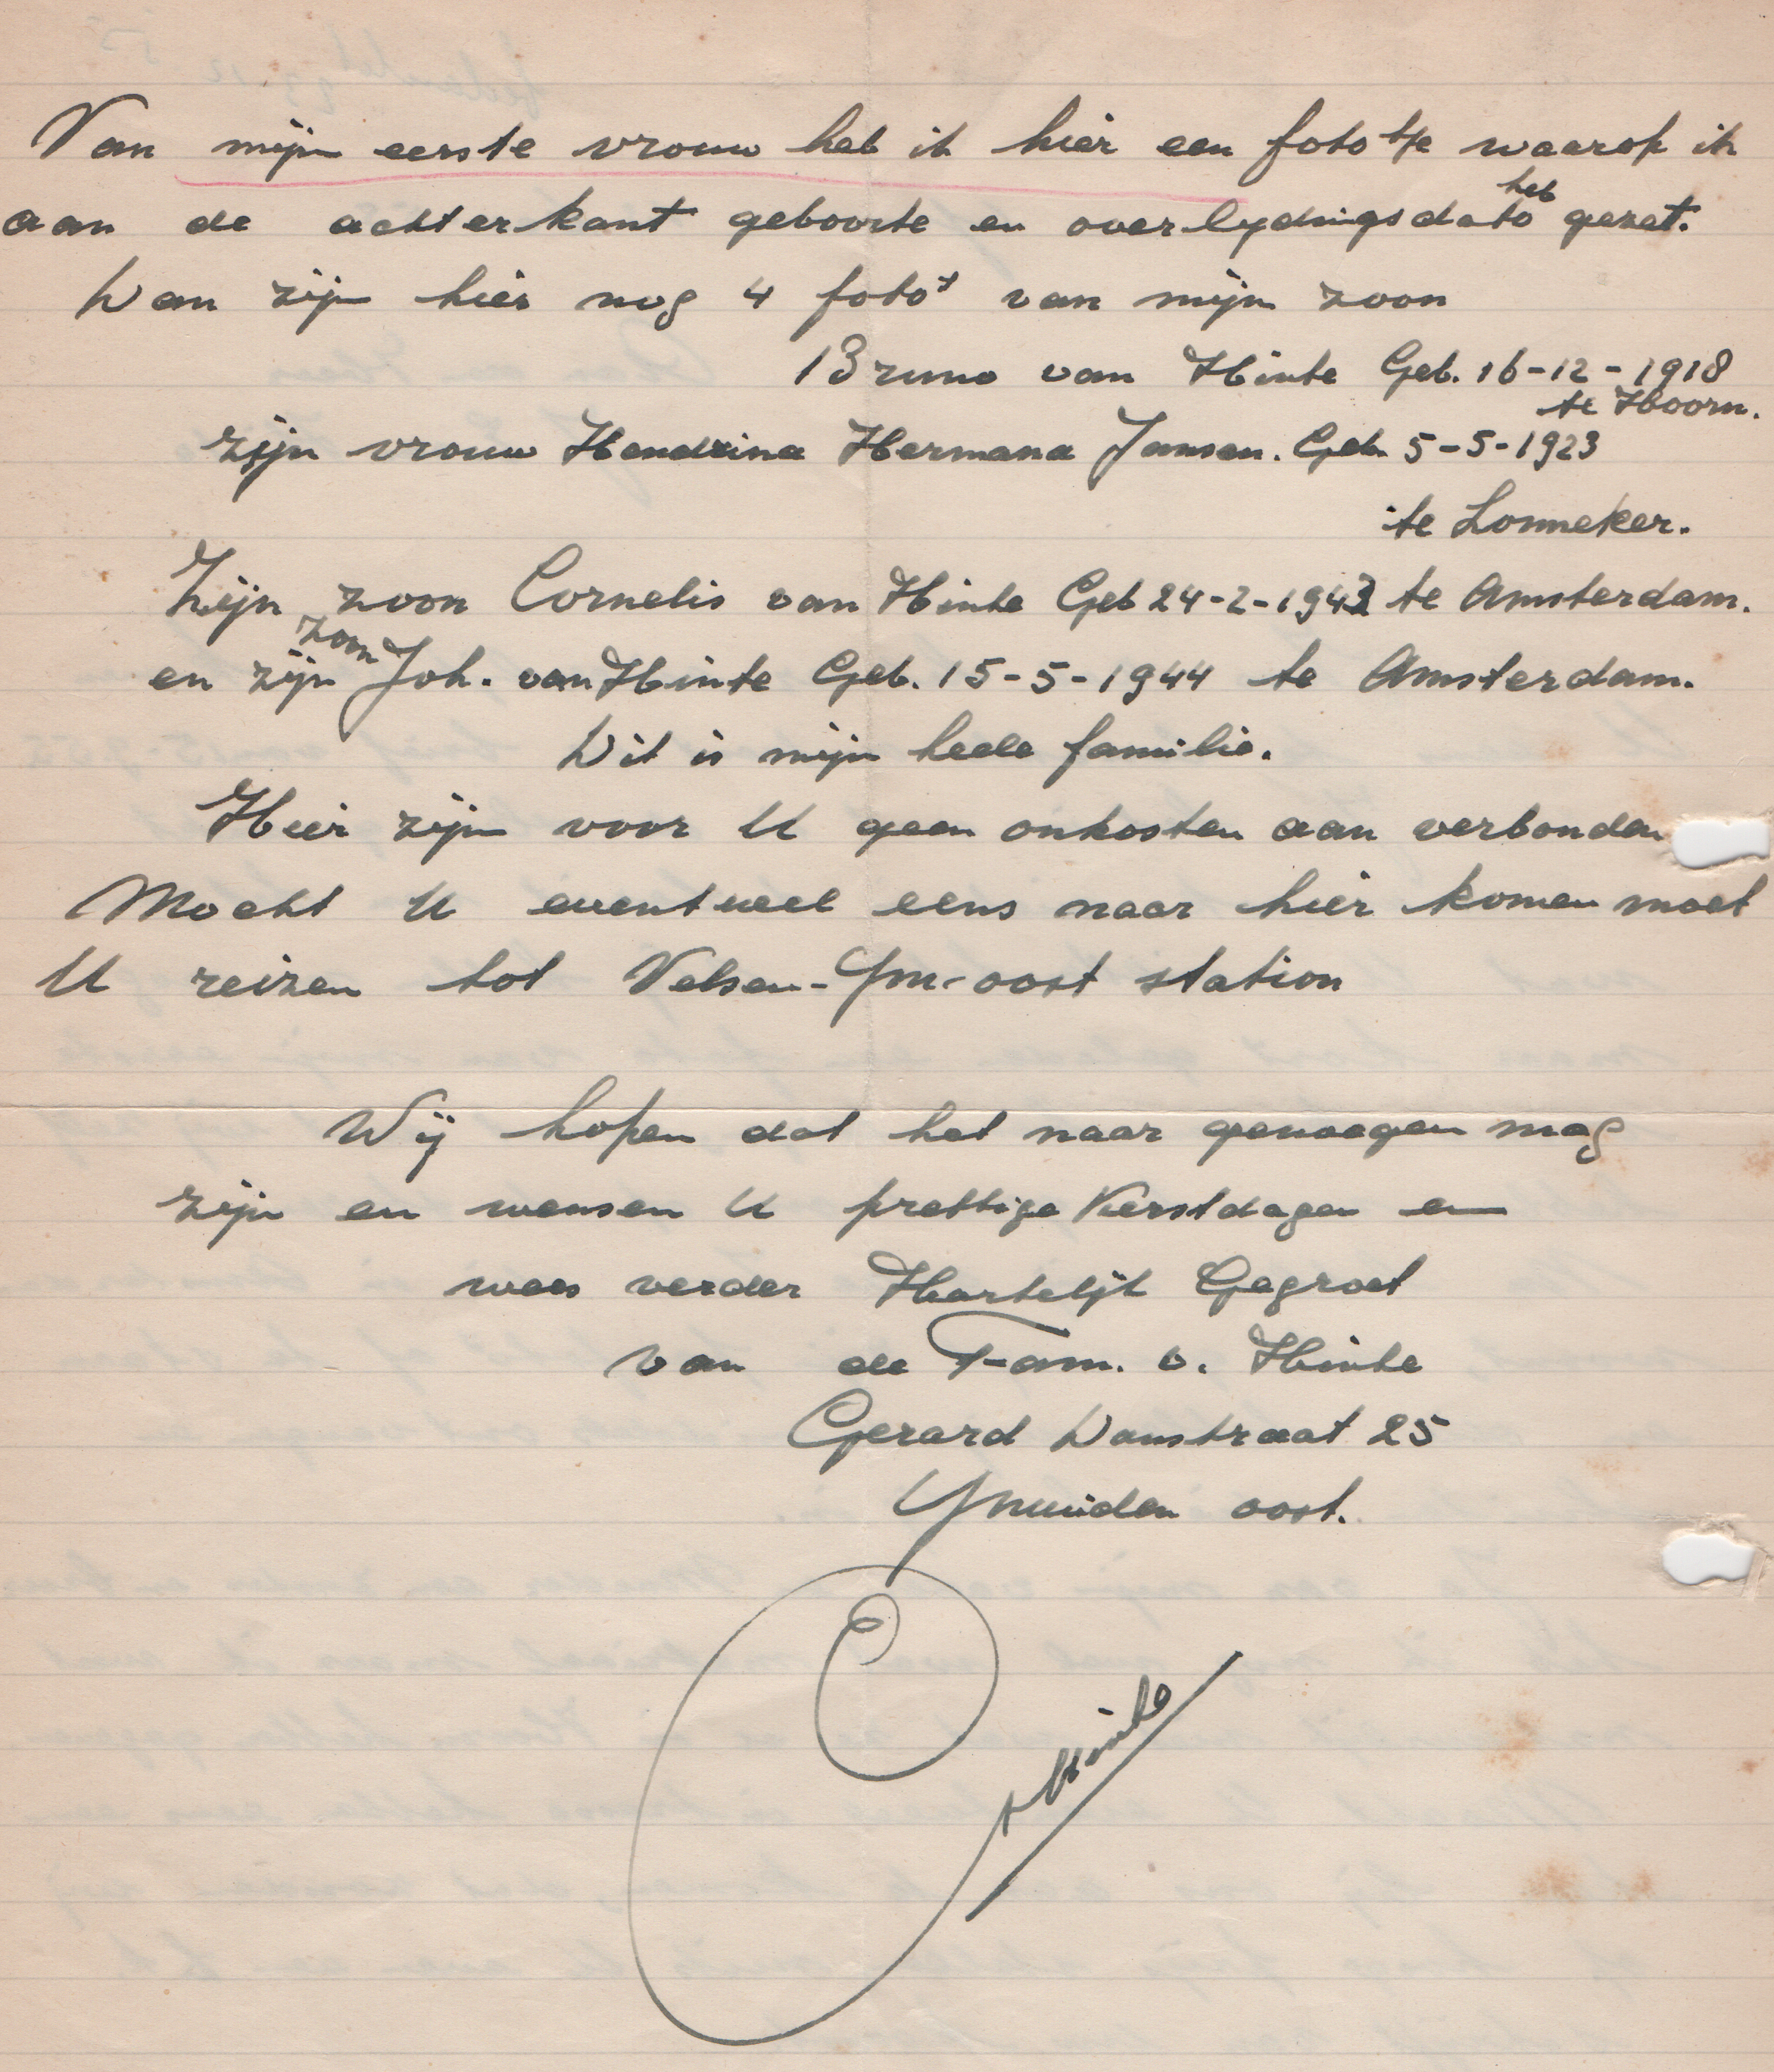 Van mijn eerste vrouw heb ik hier een fototje waarop ik
aan de achterkant geboorte en overlydingsdato heb gezet.
Dan zijn hier nog 4 foto's van mijn zoon
Bruno van Hinte Geb. 16-12-1918
te Hoorn.
zijn vrouw Hendrina Hermana Jansen. Geb. 5-5-1923
te Lonneker.
Zijn zoon Cornelis van Hinte Geb 24-2-1943 te Amsterdam.
en zijn zoon Joh. van Hinte Geb. 15-5-1944 te Amsterdam.
Dit is mijn heele familie.
Hier zijn voor U geen onkosten aan verbonden
Mocht U eventueel eens naar hier komen moet
U reizen tot Velsen-Ym-oost station
Wij hopen dat het naar genoegen mag
zijn en wensen U prettige Kerstdagen en
wees verder Hartelijk Gegroet
van de Fam. v. Hinte
Gerard Doustraat 25
Ymuiden oost.
C v Hinte